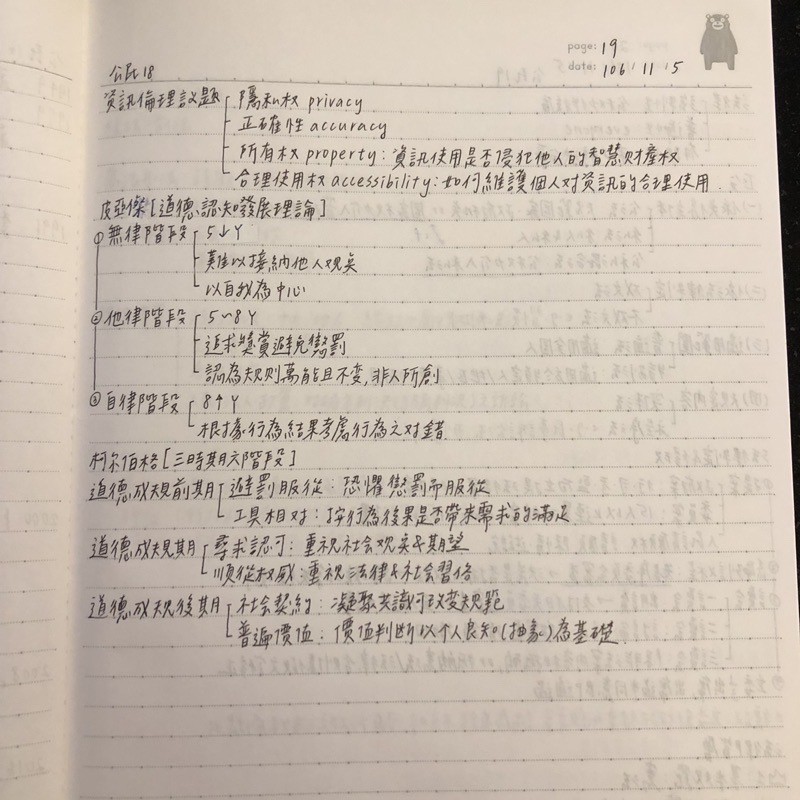 page: 19
date: 106 11 5
公民18
資訊倫理議題 隱私权 privacy
正確性 accuracy
所有权 property: 資訊使用是否侵犯他人的智慧财產权
合理使用权 accessibility: 如何維護個人对資訊的合理使用
皮亞傑[道德認知發展理論]
①無律階段 5↓Y
難以接納他人观矣
以自我為中心
②他律階段 5~8Y
追求獎賞避免懲罰
認為規则萬能且不変,非人所創
③自律階段 8↑Y
根據行為結果考慮行為之对錯
柯尔伯格[三時期六階段]
道德成規前期 避罰服從: 恐懼懲罰而服從
工具相对: 按行為後果是否帶來需求的滿足
道德成規期 尋求認可: 重視社会观矣&期望
順從权威: 重視法律&社会習俗
道德成規後期 社会契約: 凝聚共識可改変規範
普遍價值: 價值判断以个人良知(抽象)為基礎